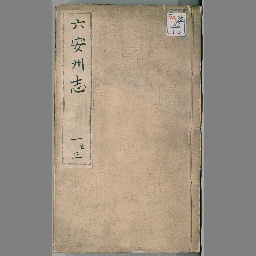 六安州志
一之三